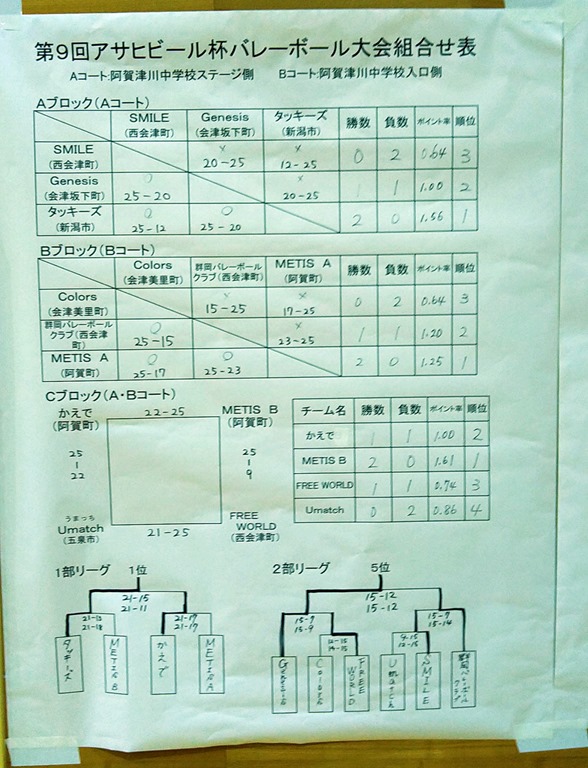 第9回アサヒビール杯バレーボール大会組合せ表
Aコート:阿賀津川中学校ステージ側　Bコート:阿賀津川中学校入口側
Aブロック(Aコート)
SMILE (西会津町) Genesis (会津坂下町) タッキーズ (新潟市) 勝数 負数 ポイント率 順位
SMILE (西会津町) × 20-25 × 12-25 0 2 0.64 3
Genesis (会津坂下町) ○ 25-20 × 20-25 1 1 1.00 2
タッキーズ (新潟市) ○ 25-12 ○ 25-20 2 0 1.56 1
Bブロック(Bコート)
Colors (会津美里町) 群岡バレーボールクラブ(西会津町) METIS A (阿賀町) 勝数 負数 ポイント率 順位
Colors (会津美里町) × 15-25 × 17-25 0 2 0.64 3
群岡バレーボールクラブ(西会津町) ○ 25-15 × 23-25 1 1 1.20 2
METIS A (阿賀町) ○ 25-17 ○ 25-23 2 0 1.25 1
Cブロック(A・Bコート)
かえで (阿賀町) 22-25 METIS B (阿賀町)
25-22
25-9
うまっち
Umatch (五泉市) 21-25 FREE WORLD (西会津町)
チーム名 勝数 負数 ポイント率 順位
かえで 1 1 1.00 2
METIS B 2 0 1.61 1
FREE WORLD 1 1 0.74 3
Umatch 0 2 0.86 4
1部リーグ 1位
21-15
21-11
21-17
21-17
タッキーズ
METIS B
かえで
METIS A
2部リーグ 5位
15-12
15-12
15-7
15-9
15-7
15-14
12-15
14-15
9-15
12-15
Genesis
Colors
FREE WORLD
Umatch
SMILE
群岡バレーボールクラブ